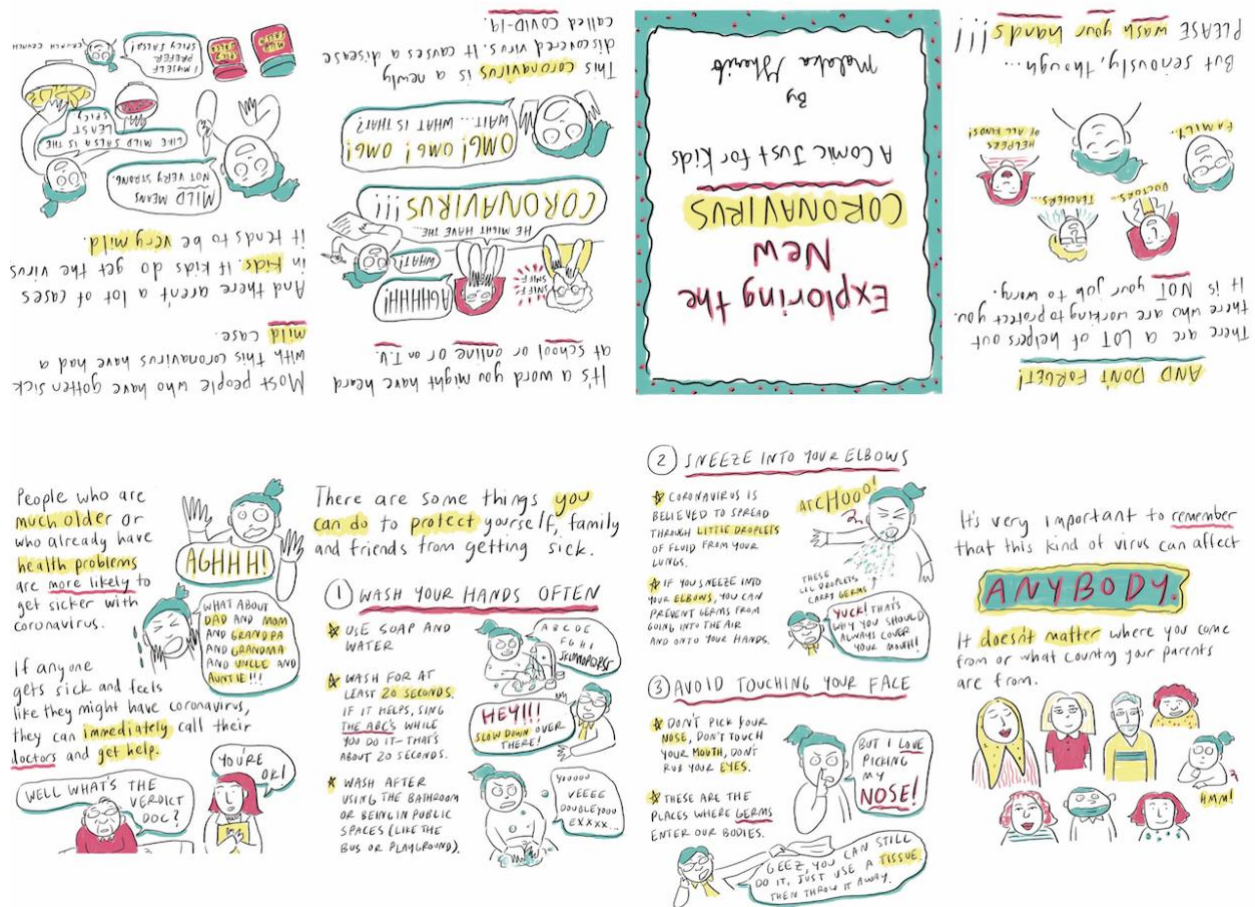 Exploring the
New
CORONAVIRUS
A Comic Just for Kids
By
Malaka Gharib
It's a word you might have heard
at school or online or on T.V.
SNIFF
SNIFF
AGHHHH!
WHAT!
HE MIGHT HAVE THE...
CORONAVIRUS!!!
OMG! OMG! OMG!
WAIT... WHAT IS THAT?
This coronavirus is a newly
discovered virus. It causes a disease
called COVID-19.
Most people who have gotten sick
with this coronavirus have had a
mild case.
And there aren't a lot of cases
in kids. If kids do get the virus
it tends to be very mild.
MILD MEANS
NOT VERY STRONG.
LIKE MILD SALSA IS THE
LEAST
SPICY
I MYSELF
PREFER
SPICY SALSA!
CRUNCH CRUNCH
People who are
much older or
who already have
health problems
are more likely to
get sicker with
coronavirus.
AGHHH!
WHAT ABOUT
DAD AND MOM
AND GRANDPA
AND GRANDMA
AND UNCLE AND
AUNTIE!!!
If anyone
gets sick and feels
like they might have coronavirus,
they can immediately call their
doctors and get help.
WELL WHAT'S THE
VERDICT
DOC?
YOU'RE
OK!
There are some things you
can do to protect yourself, family
and friends from getting sick.
1 WASH YOUR HANDS OFTEN
USE SOAP AND
WATER
WASH FOR AT
LEAST 20 SECONDS.
IF IT HELPS, SING
THE ABC'S WHILE
YOU DO IT — THAT'S
ABOUT 20 SECONDS.
WASH AFTER
USING THE BATHROOM
OR BEING IN PUBLIC
SPACES (LIKE THE
BUS OR PLAYGROUND).
A B C D E
F G H I
JKLMNOPQRST
HEY!!!
SLOW DOWN OVER
THERE!
YOUUUU
VEEEE
DOUBLEYOUU
EXXXX...
2 SNEEZE INTO YOUR ELBOWS
CORONAVIRUS IS
BELIEVED TO SPREAD
THROUGH LITTLE DROPLETS
OF FLUID FROM YOUR
LUNGS.
IF YOU SNEEZE INTO
YOUR ELBOWS, YOU CAN
PREVENT GERMS FROM
GOING INTO THE AIR
AND ONTO YOUR HANDS.
ATCHOOO!
THESE
LIL DROPLETS
CARRY GERMS
YUCK! THAT'S
WHY YOU SHOULD
ALWAYS COVER
YOUR MOUTH!!
3 AVOID TOUCHING YOUR FACE
DON'T PICK YOUR
NOSE, DON'T TOUCH
YOUR MOUTH, DON'T
RUB YOUR EYES.
THESE ARE THE
PLACES WHERE GERMS
ENTER OUR BODIES.
BUT I LOVE
PICKING
MY
NOSE!
GEEZ, YOU CAN STILL
DO IT, JUST USE A TISSUE.
THEN THROW IT AWAY.
It's very important to remember
that this kind of virus can affect
ANYBODY.
It doesn't matter where you come
from or what country your parents
are from.
HMM!
AND DON'T FORGET!
There are a LOT of helpers out
there who are working to protect you.
It is NOT your job to worry.
DOCTORS...
TEACHERS...
FAMILY...
HELPERS
OF ALL KINDS!
But seriously, though...
PLEASE wash your hands!!!!